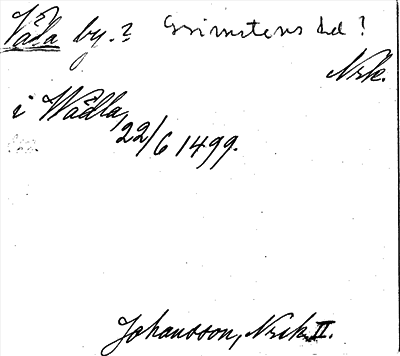 Våla by.? Grimstens hd?
Nrk.
i Wådla,
22/6 1499.
Johansson, Nrik II.